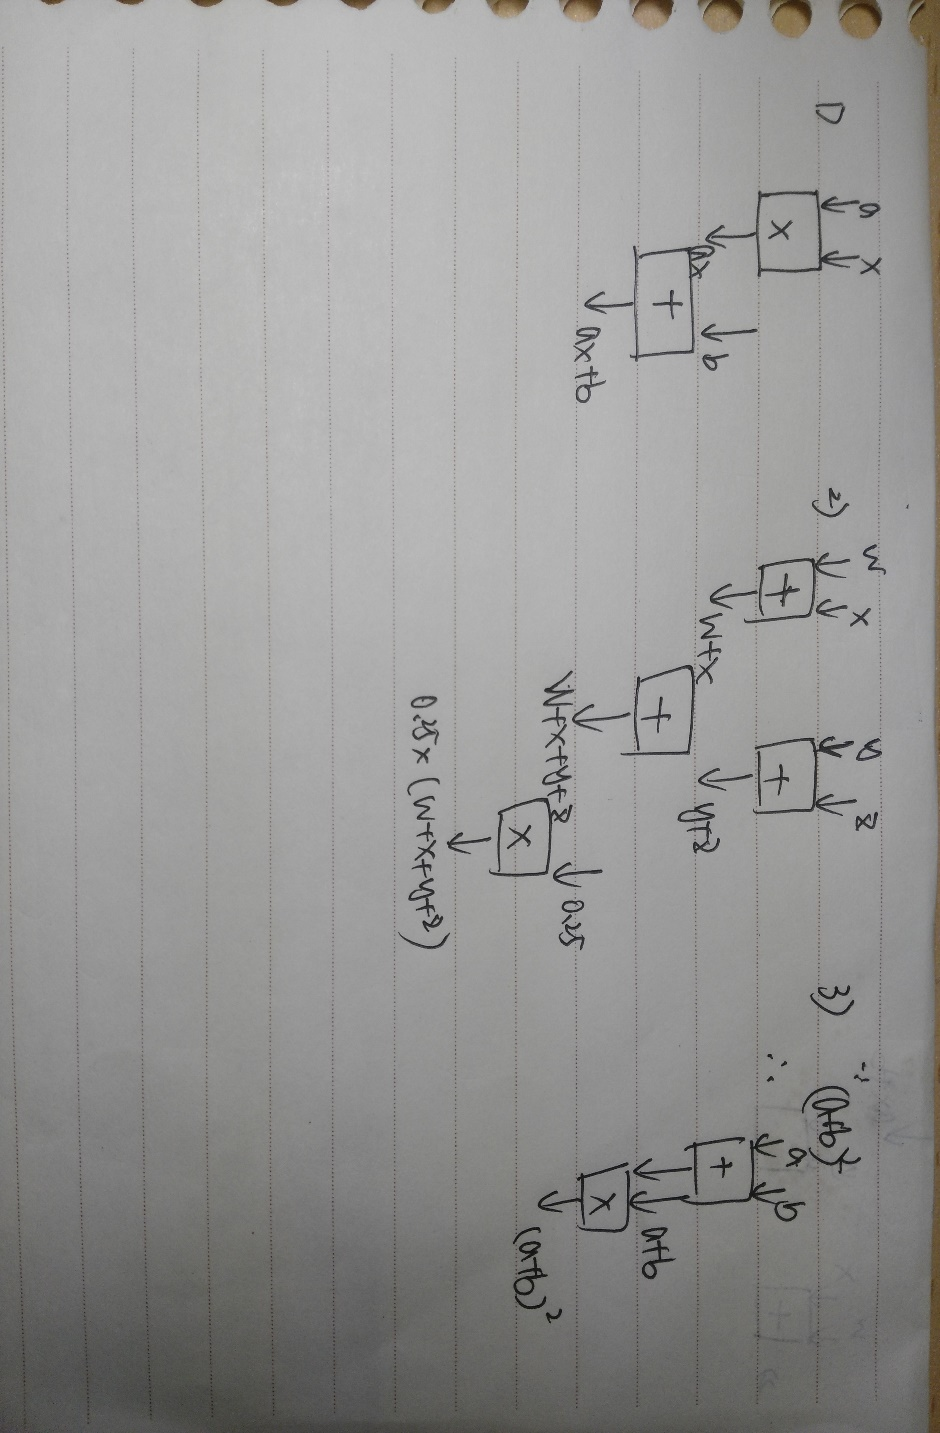 1)
a x
×
ax b
+
ax+b
2)
w x
+
w+x
y z
+
y+z
+
w+x+y+z 0.25
×
0.25 × (w+x+y+z)
3)
∵ (a+b)²
∴
a b
+
a+b
×
(a+b)²